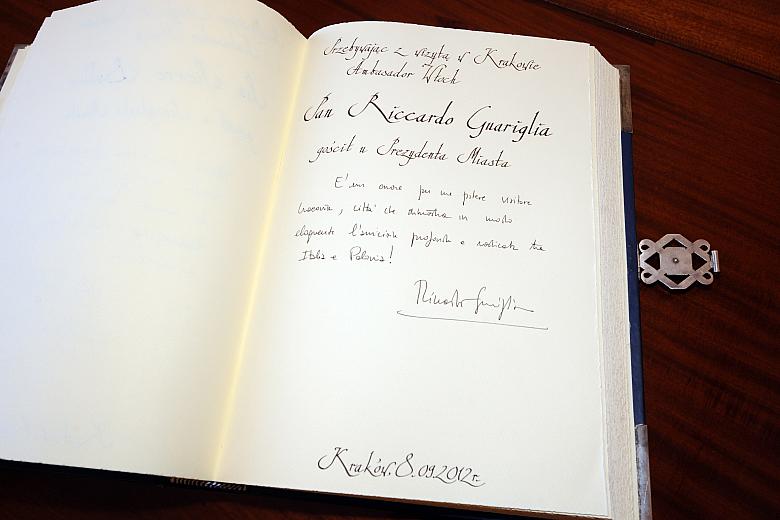 Przebywając z wizytą w Krakowie
Ambasador Włoch
Pan Riccardo Guariglia
gościł u Prezydenta Miasta
E' un onore per me potere visitare
Cracovia, città che dimostra in modo
eloquente l'amicizia profonda e radicata tra
Italia e Polonia!
Riccardo Guariglia
Kraków, 8.09.2012r.